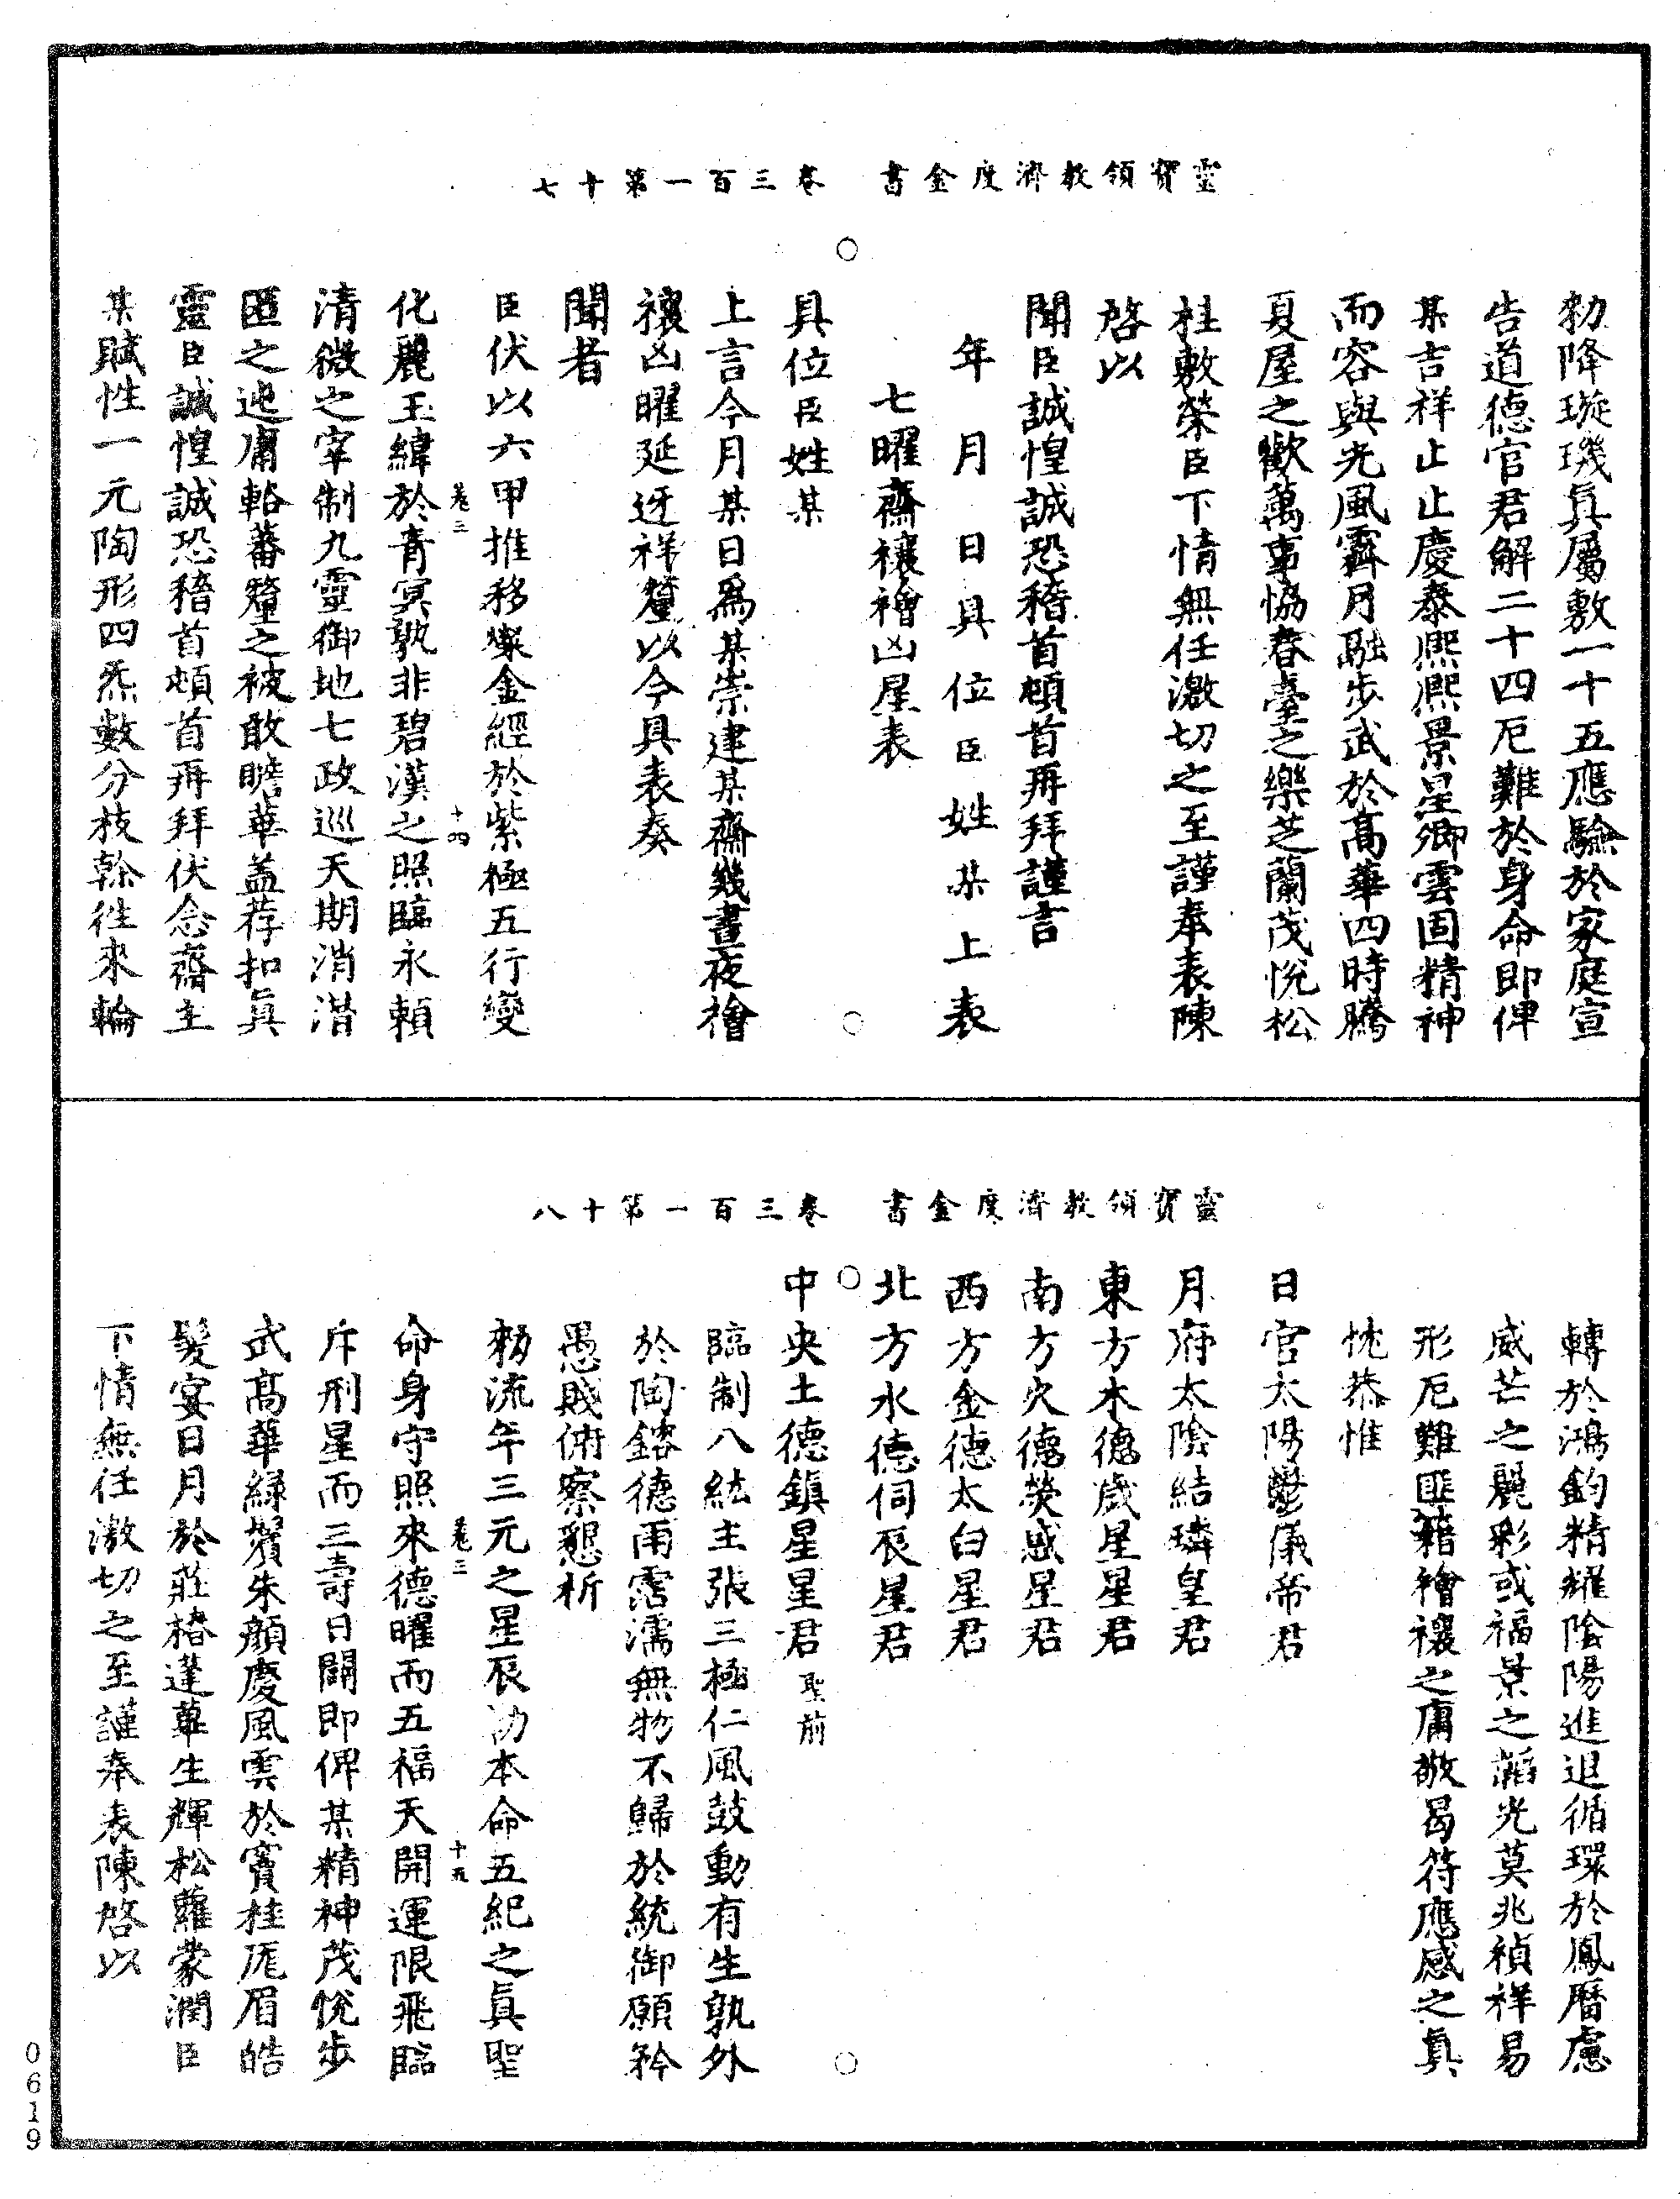 靈寶領教濟度金書　卷三百一第十七
勑降璇璣眞屬敷一十五應驗於家庭宣
告道德官君解二十四厄難於身命即俾
某吉祥止止慶泰熙熙景星卿雲固精神
而容與光風霽月融步武於高華四時騰
夏屋之歡萬事協春臺之樂芝蘭茂悅松
桂敷榮臣下情無任激切之至謹奉表陳
啓以
聞臣誠惶誠恐稽首頓首再拜謹言
年　月　日具位臣姓某上表
七曜齋禳禬凶星表
具位臣姓某
上言今月某日爲某崇建某齋幾晝夜禬
禳凶曜延迓祥釐以今具表奏
聞者
臣伏以六甲推移燦金經於紫極五行變
化麗玉緯於青冥孰非碧漢之照臨永賴
卷三　十四
清微之宰制九靈御地七政巡天期消潛
匿之迍庸輅蕃釐之被敢瞻華蓋荐扣眞
靈臣誠惶誠恐稽首頓首再拜伏念齋主
某賦性一元陶形四炁數分枝榦徃來輪
靈寶領教濟度金書　卷三百一第十八
轉於鴻鈞精耀陰陽進退循環於鳳曆慮
威芒之麗彩或福景之韜光莫兆禎祥易
形厄難匪藉禬禳之庸敬曷符應感之眞
忱恭惟
日宮太陽鬱儀帝君
月府太陰結璘皇君
東方木德歲星星君
南方火德熒惑星君
西方金德太白星君
北方水德伺辰星君
中央土德鎭星星君聖前
臨制八紘主張三極仁風鼓動有生孰外
於陶鎔德雨霑濡無物不歸於統御願矜
愚賤俯察懇祈
勑流年三元之星辰勑本命五紀之眞聖
命身守照來德曜而五福天開運限飛臨
卷三　十五
斥刑星而三壽日闢即俾某精神茂悅步
武高華綠鬢朱顏慶風雲於竇桂厖眉皓
髮宴日月於莊椿蓬蓽生輝松蘿蒙潤臣
下情無任激切之至謹奉表陳啓以
0619